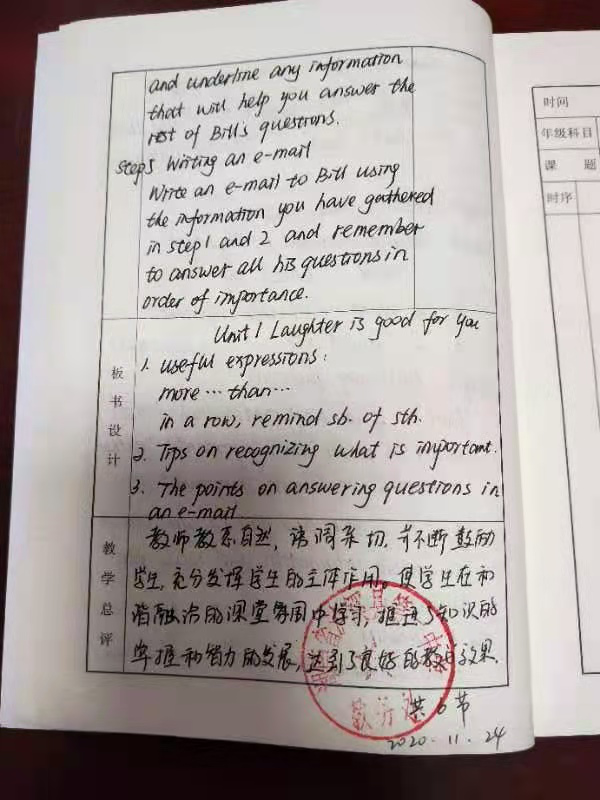 and underline any information
that will help you answer the
rest of Bill's questions.
Step5 Writing an e-mail
Write an e-mail to Bill using
the information you have gathered
in step1 and 2 and remember
to answer all his questions in
order of importance.
板书设计
Unit 1 Laughter is good for you
1. useful expressions:
more … than …
in a row, remind sb. of sth.
2. Tips on recognizing what is important.
3. The points on answering questions in
an e-mail
教学总评
教师教态自然，语调亲切，并不断鼓励
学生，充分发挥学生的主体作用。使学生在和
谐融洽的课堂氛围中学习，推进了知识的
掌握和智力的发展，达到了良好的教学效果。
教务处
共6节
2020.11.24
时间
年级科目
课题
时序